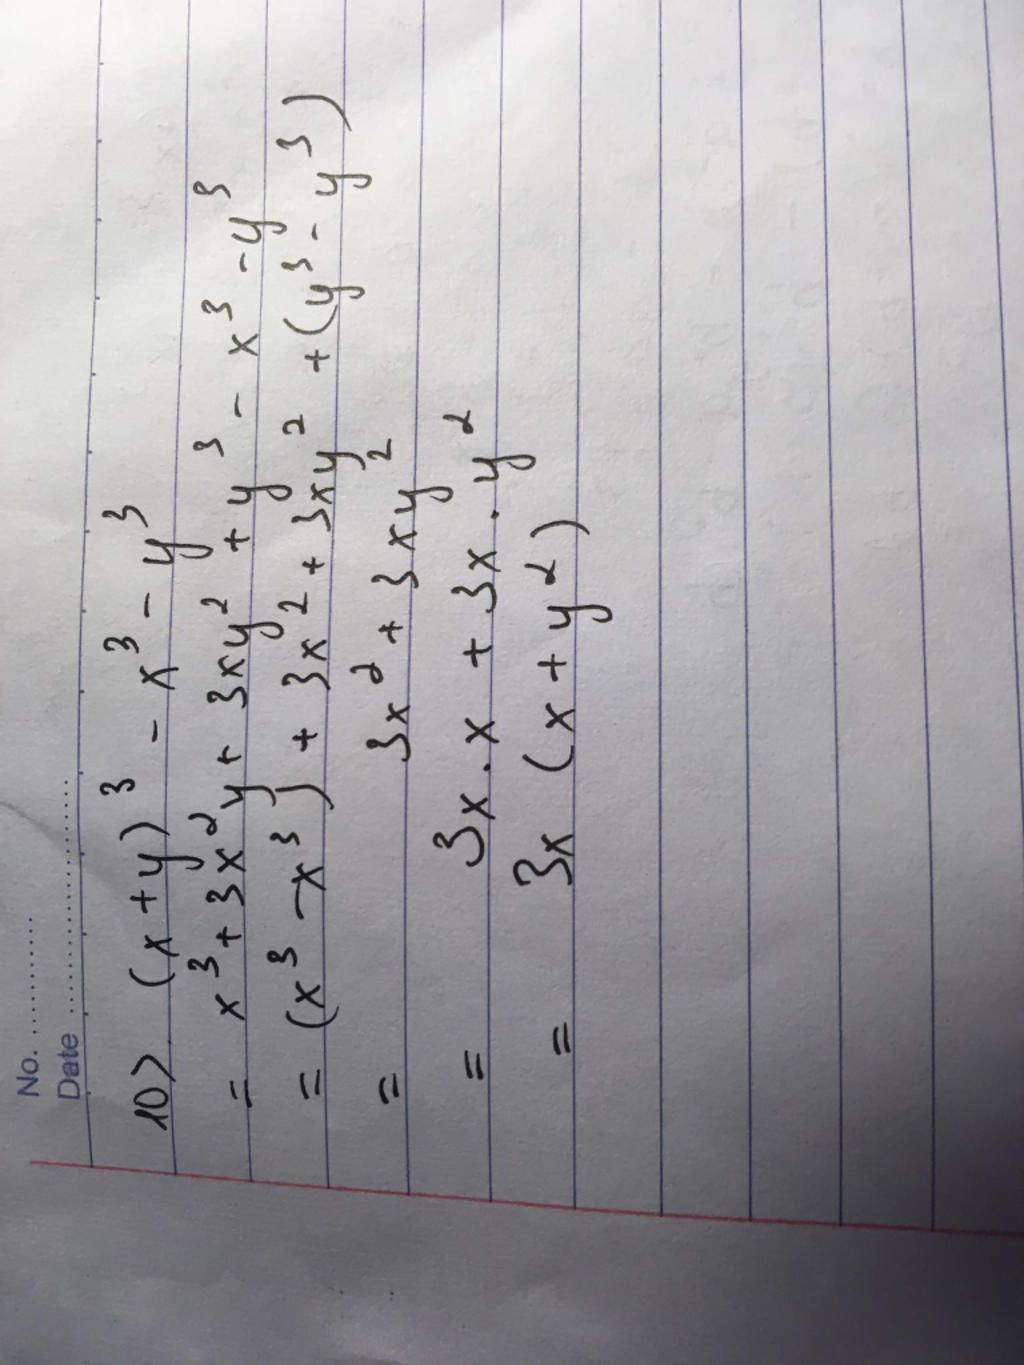 No. ............
Date ........................
10) (x+y)³ - x³ - y³
= x³ + 3x²y + 3xy² + y³ - x³ - y³
= (x³ - x³) + 3x² + 3xy² + (y³ - y³)
= 3x² + 3xy²
= 3x.x + 3x.y²
= 3x (x + y²)